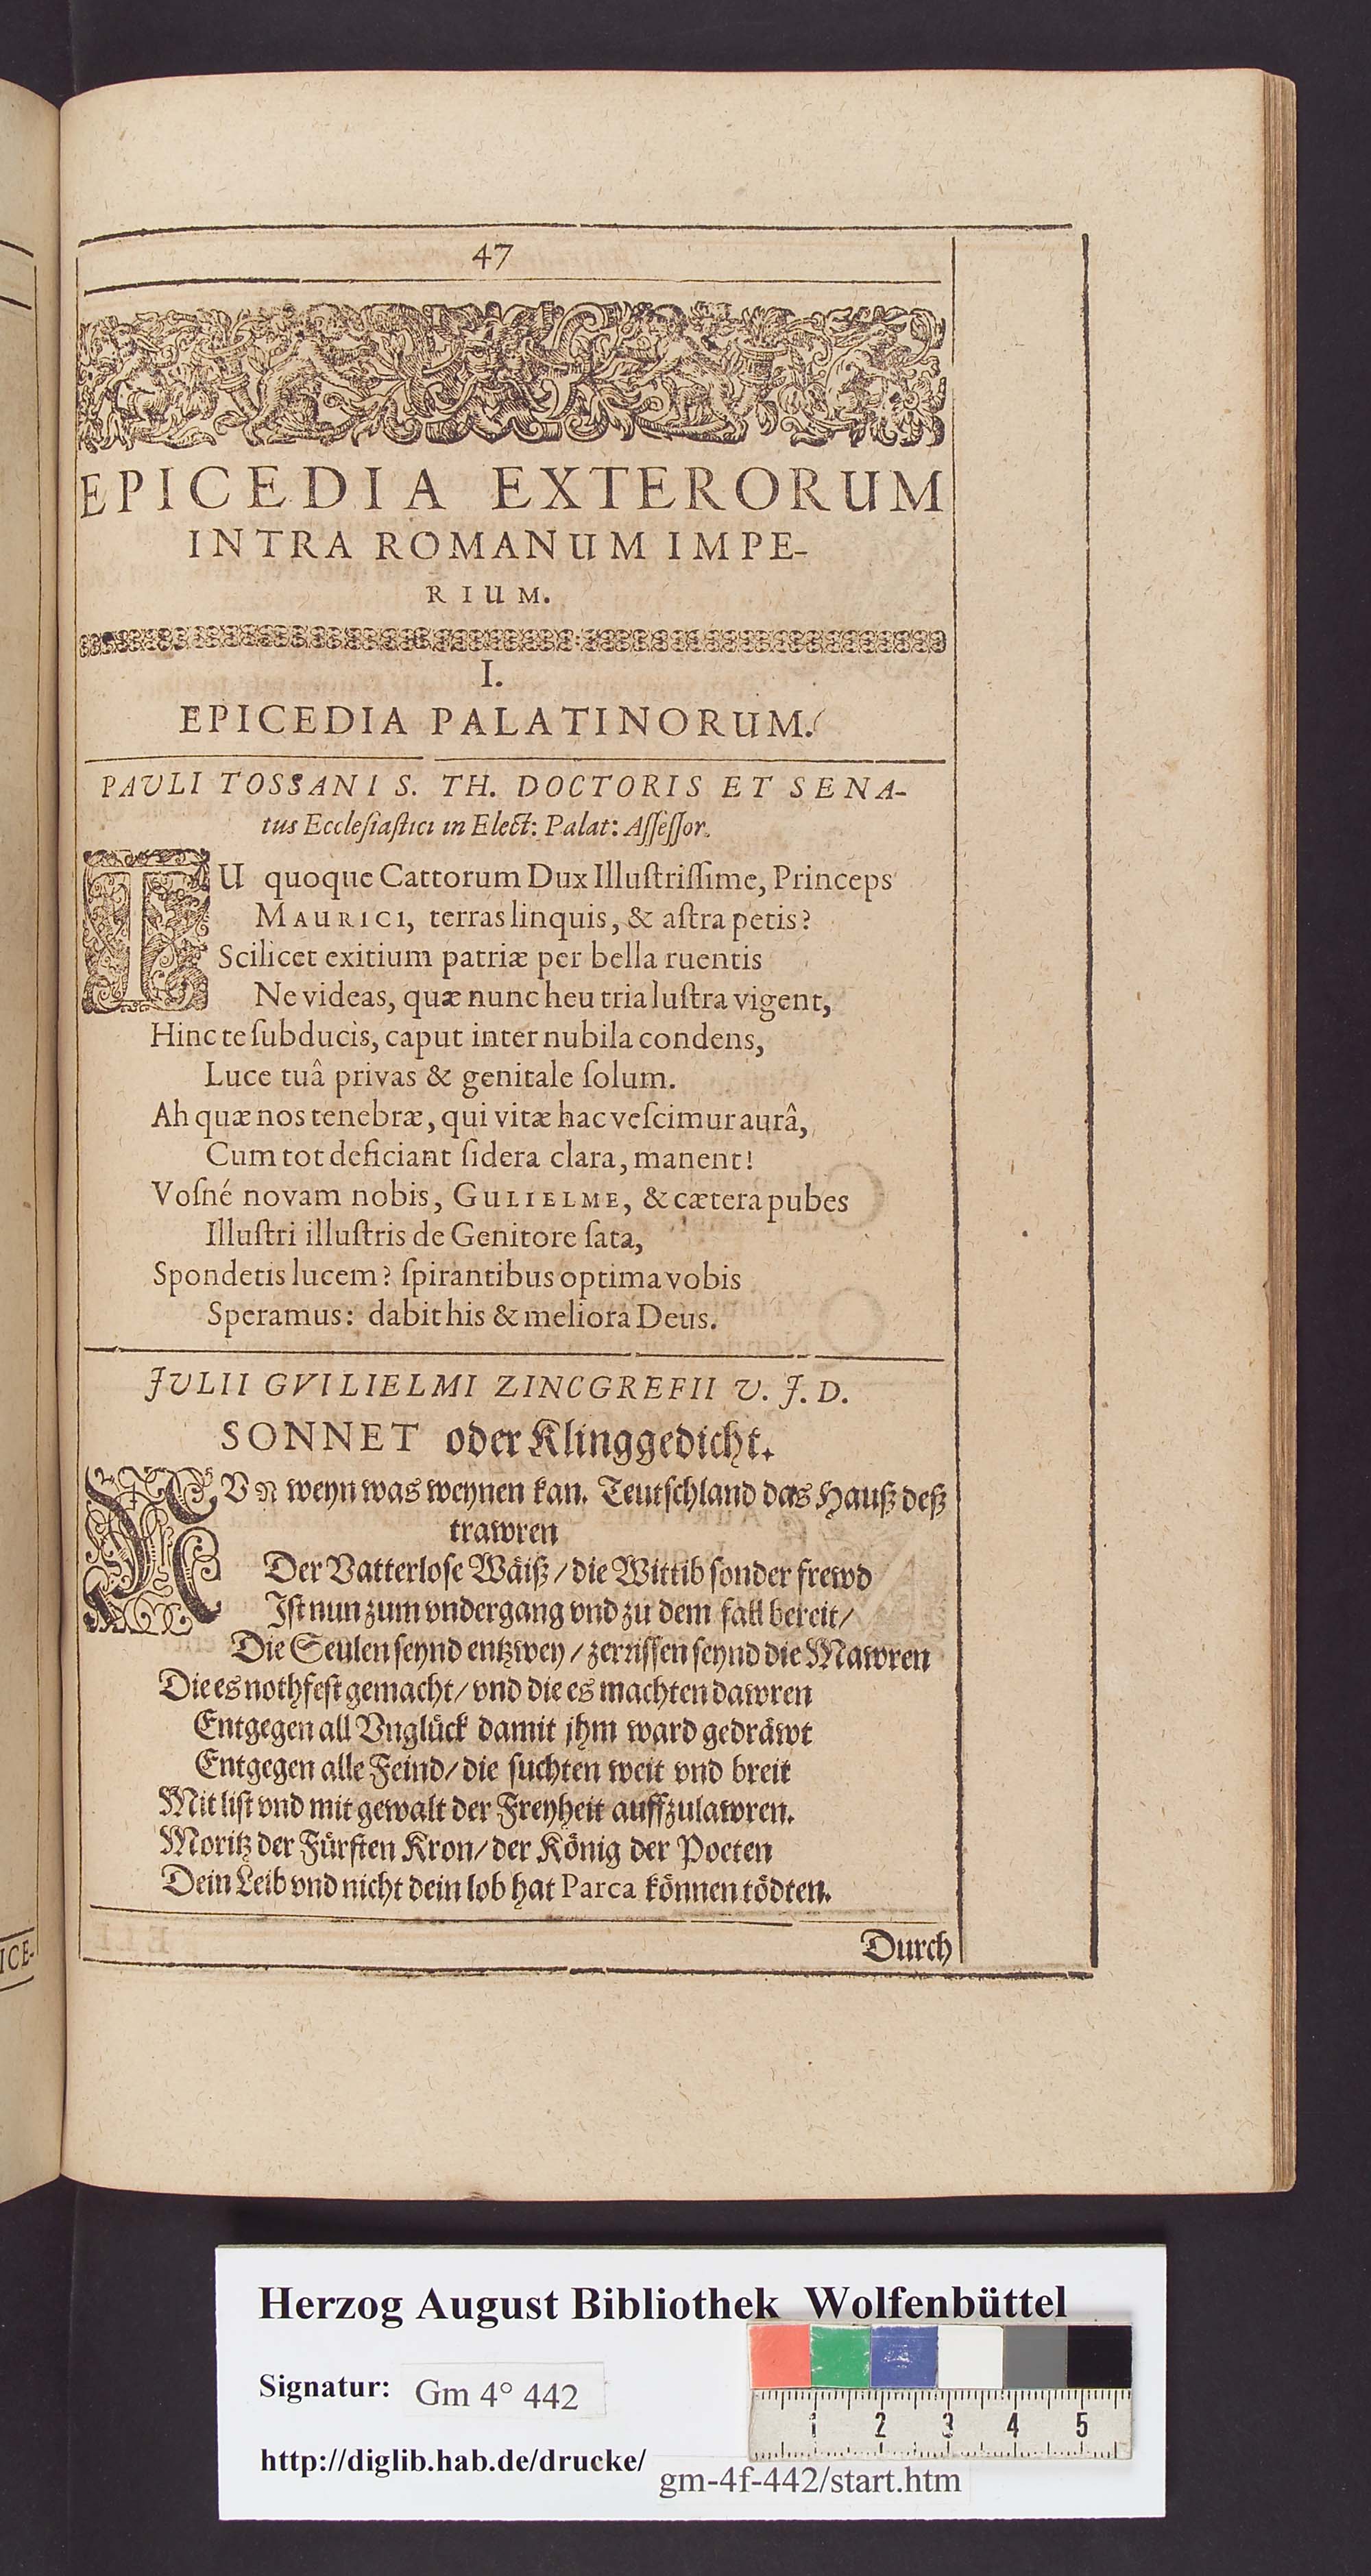 47
EPICEDIA EXTERORUM
INTRA ROMANUM IMPE-
RIUM.
I.
EPICEDIA PALATINORUM.
PAVLI TOSSANI S. TH. DOCTORIS ET SENA-
tus Ecclesiastici in Elect: Palat: Assessor.
TU quoque Cattorum Dux Illustrissime, Princeps
MAURICI, terras linquis, & astra petis?
Scilicet exitium patriæ per bella ruentis
Ne videas, quæ nunc heu tria lustra vigent,
Hinc te subducis, caput inter nubila condens,
Luce tuâ privas & genitale solum.
Ah quæ nos tenebræ, qui vitæ hac vescimur aurâ,
Cum tot deficiant sidera clara, manent!
Vosné novam nobis, GULIELME, & cætera pubes
Illustri illustris de Genitore sata,
Spondetis lucem? spirantibus optima vobis
Speramus: dabit his & meliora Deus.
JVLII GVILIELMI ZINCGREFII V. J. D.
SONNET oder Klinggedicht.
NVN weyn was weynen kan. Teutschland das Hauß deß
trawren
Der Vatterlose Wäiß / die Wittib sonder frewd
Ist nun zum vndergang vnd zu dem fall bereit /
Die Seulen seynd entzwey / zerrissen seynd die Mawren
Die es nothfest gemacht / vnd die es machten dawren
Entgegen all Vnglück damit jhm ward gedräwt
Entgegen alle Feind / die suchten weit vnd breit
Mit list vnd mit gewalt der Freyheit auffzulawren.
Moritz der Fürsten Kron / der König der Poeten
Dein Leib vnd nicht dein lob hat Parca können tödten.
Durch
ICE-
Herzog August Bibliothek Wolfenbüttel
Signatur: Gm 4° 442
1 2 3 4 5
http://diglib.hab.de/drucke/ gm-4f-442/start.htm